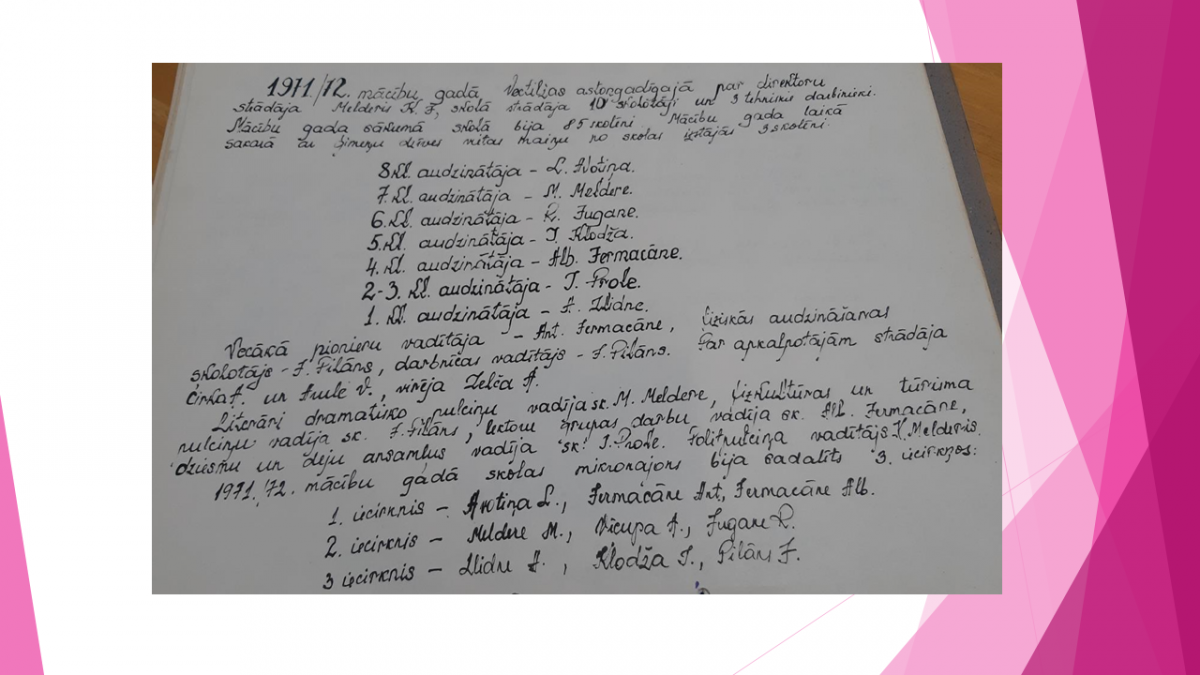 1971./72. mācību gadā Vectilžas astongadīgajā par direktoru
strādāja Melderis K. J., skolā strādāja 10 skolotāji un 3 tehniskie darbinieki.
Mācību gada sākumā skolā bija 85 skolēni. Mācību gada laikā
sakarā ar ģimeņu dzīves vietas maiņu no skolas izstājās 3 skolēni.
8.kl. audzinātāja - L. Avotiņa.
7.kl. audzinātāja - M. Meldere.
6.kl. audzinātāja - R. Fugane.
5.kl. audzinātāja - I. Klodža.
4.kl. audzinātāja - Alb. Fermacāne.
2-3. kl. audzinātāja - I. Prole.
1. kl. audzinātāja - A. Zlidne.
Vecākā pionieru vadītāja - Ant. Fermacāne, fiziskās audzināšanas
skolotājs - J. Pilāns, darbnīcas vadītājs - J. Pilāns. Par apkalpotājām strādāja
un V., virēja Zelča A.
Literāri dramatisko pulciņu vadīja sk. M. Meldere, fizkultūras un tūrisma
pulciņu vadīja sk. J. Pilāns, lektoru grupas darbu vadīja sk. Alb. Fermacāne,
dziesmu un deju ansambļus vadīja sk. I. Prole. Politpulciņa vadītājs K. Melderis.
1971./72. mācību gadā skolas mikrorajons bija sadalīts 3. iecirkņos:
1. iecirknis - Avotiņa L., Fermacāne Ant., Fermacāne Alb.
2. iecirknis - Meldere M., Vicupa A., Fugane R.
3 iecirknis - Zlidne A., Klodža I., Pilāns J.